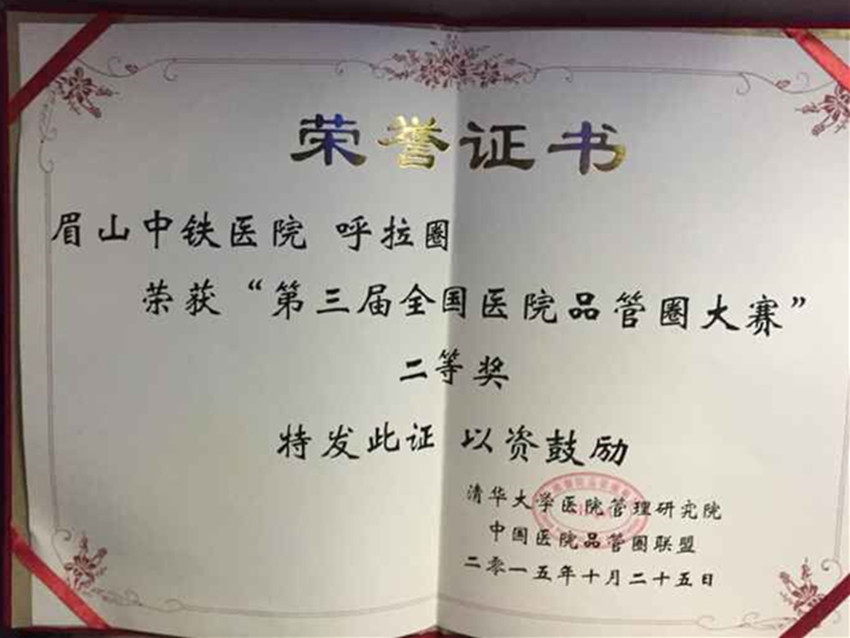 荣誉证书
眉山中铁医院 呼拉圈
荣获“第三届全国医院品管圈大赛”
二等奖
特发此证 以资鼓励
清华大学医院管理研究院
中国医院品管圈联盟
二零一五年十月二十五日